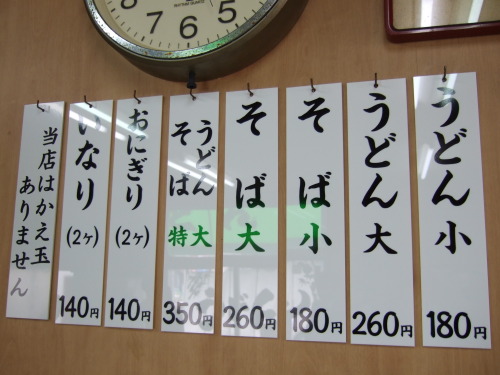 うどん小
180円
うどん大
260円
そば小
180円
そば大
260円
うどん
そば
特大
350円
おにぎり
(2ヶ)
140円
いなり
(2ヶ)
140円
当店はかえ玉
ありません